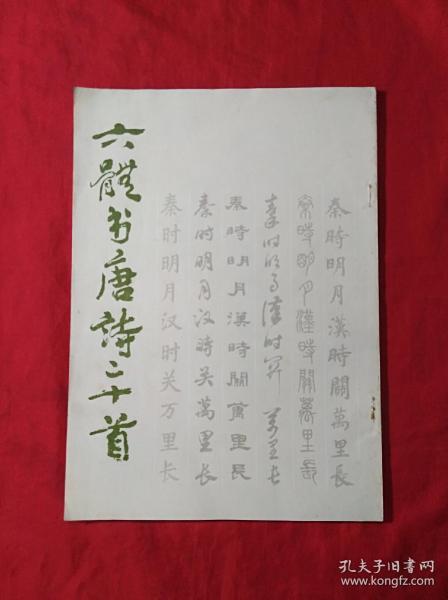 六體书唐詩三十首
秦時明月漢時關萬里長
秦時明月漢時關萬里長
秦时明月漢时关萬里长
秦時明月漢時關萬里長
秦时明月汉时关萬里长
秦时明月汉时关万里长
孔夫子旧书网
www.kongfz.com